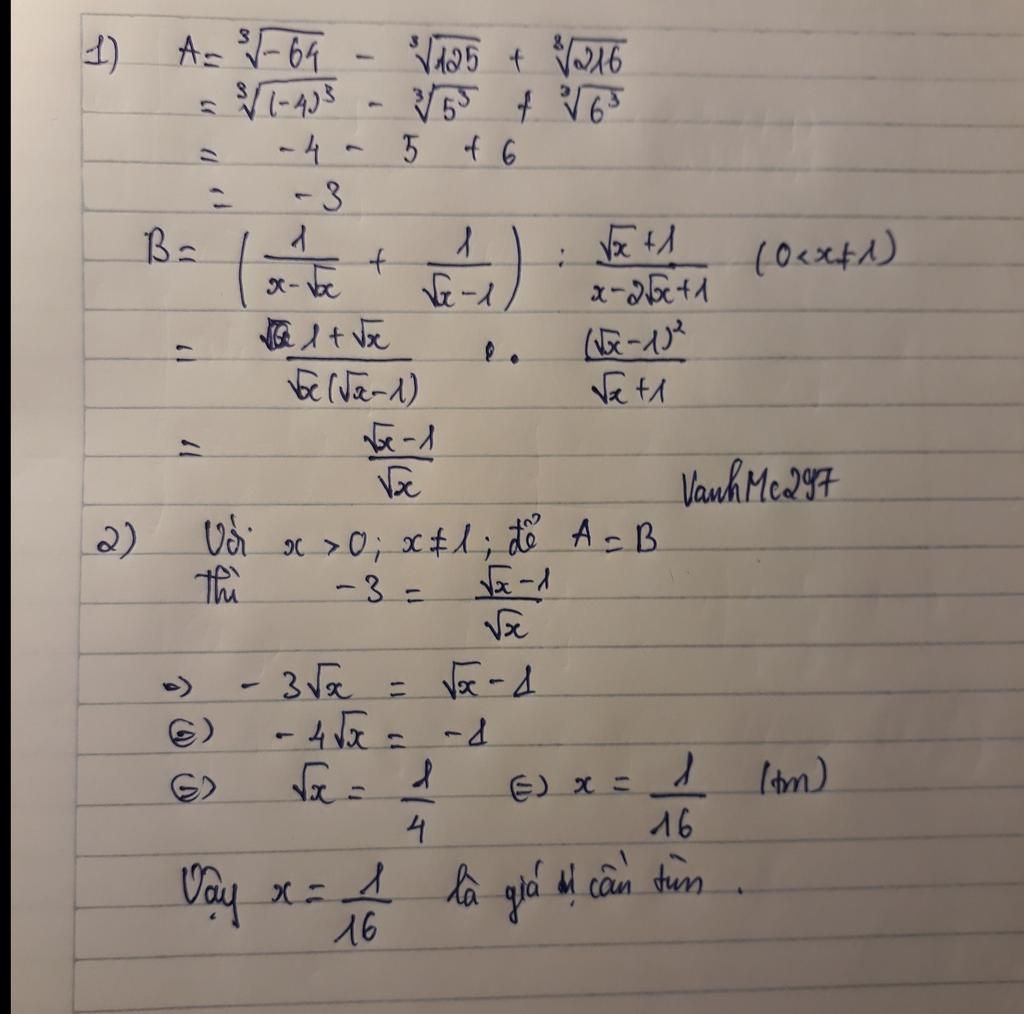 1) A = ∛-64 - ∛125 + ∛216
= ∛(-4)³ - ∛5³ + ∛6³
= -4 - 5 + 6
= -3
B = (1/(x-√x) + 1/(√x-1)) : (√x+1)/(x-2√x+1) (0<x≠1)
= (1+√x)/(√x(√x-1)) . (√x-1)²/(√x+1)
= (√x-1)/√x
VanhMc297
2) Với x > 0; x ≠ 1; để A = B
Thì -3 = (√x-1)/√x
=> -3√x = √x - 1
<=> -4√x = -1
<=> √x = 1/4 <=> x = 1/16 (tm)
Vậy x = 1/16 là giá trị cần tìm.